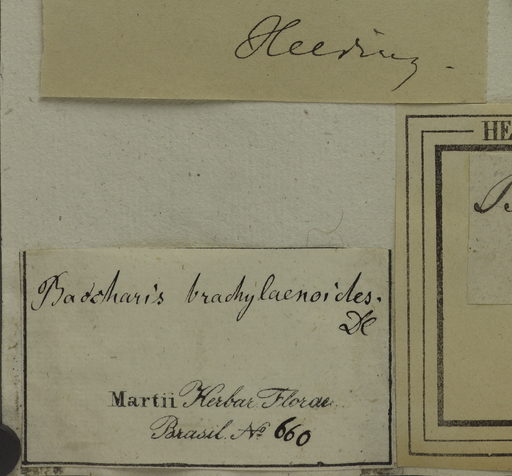 Heering.
HE
B
Baccharis brachylaenoides.
DC
Martii Herbar. Florae
Brasil. No 660